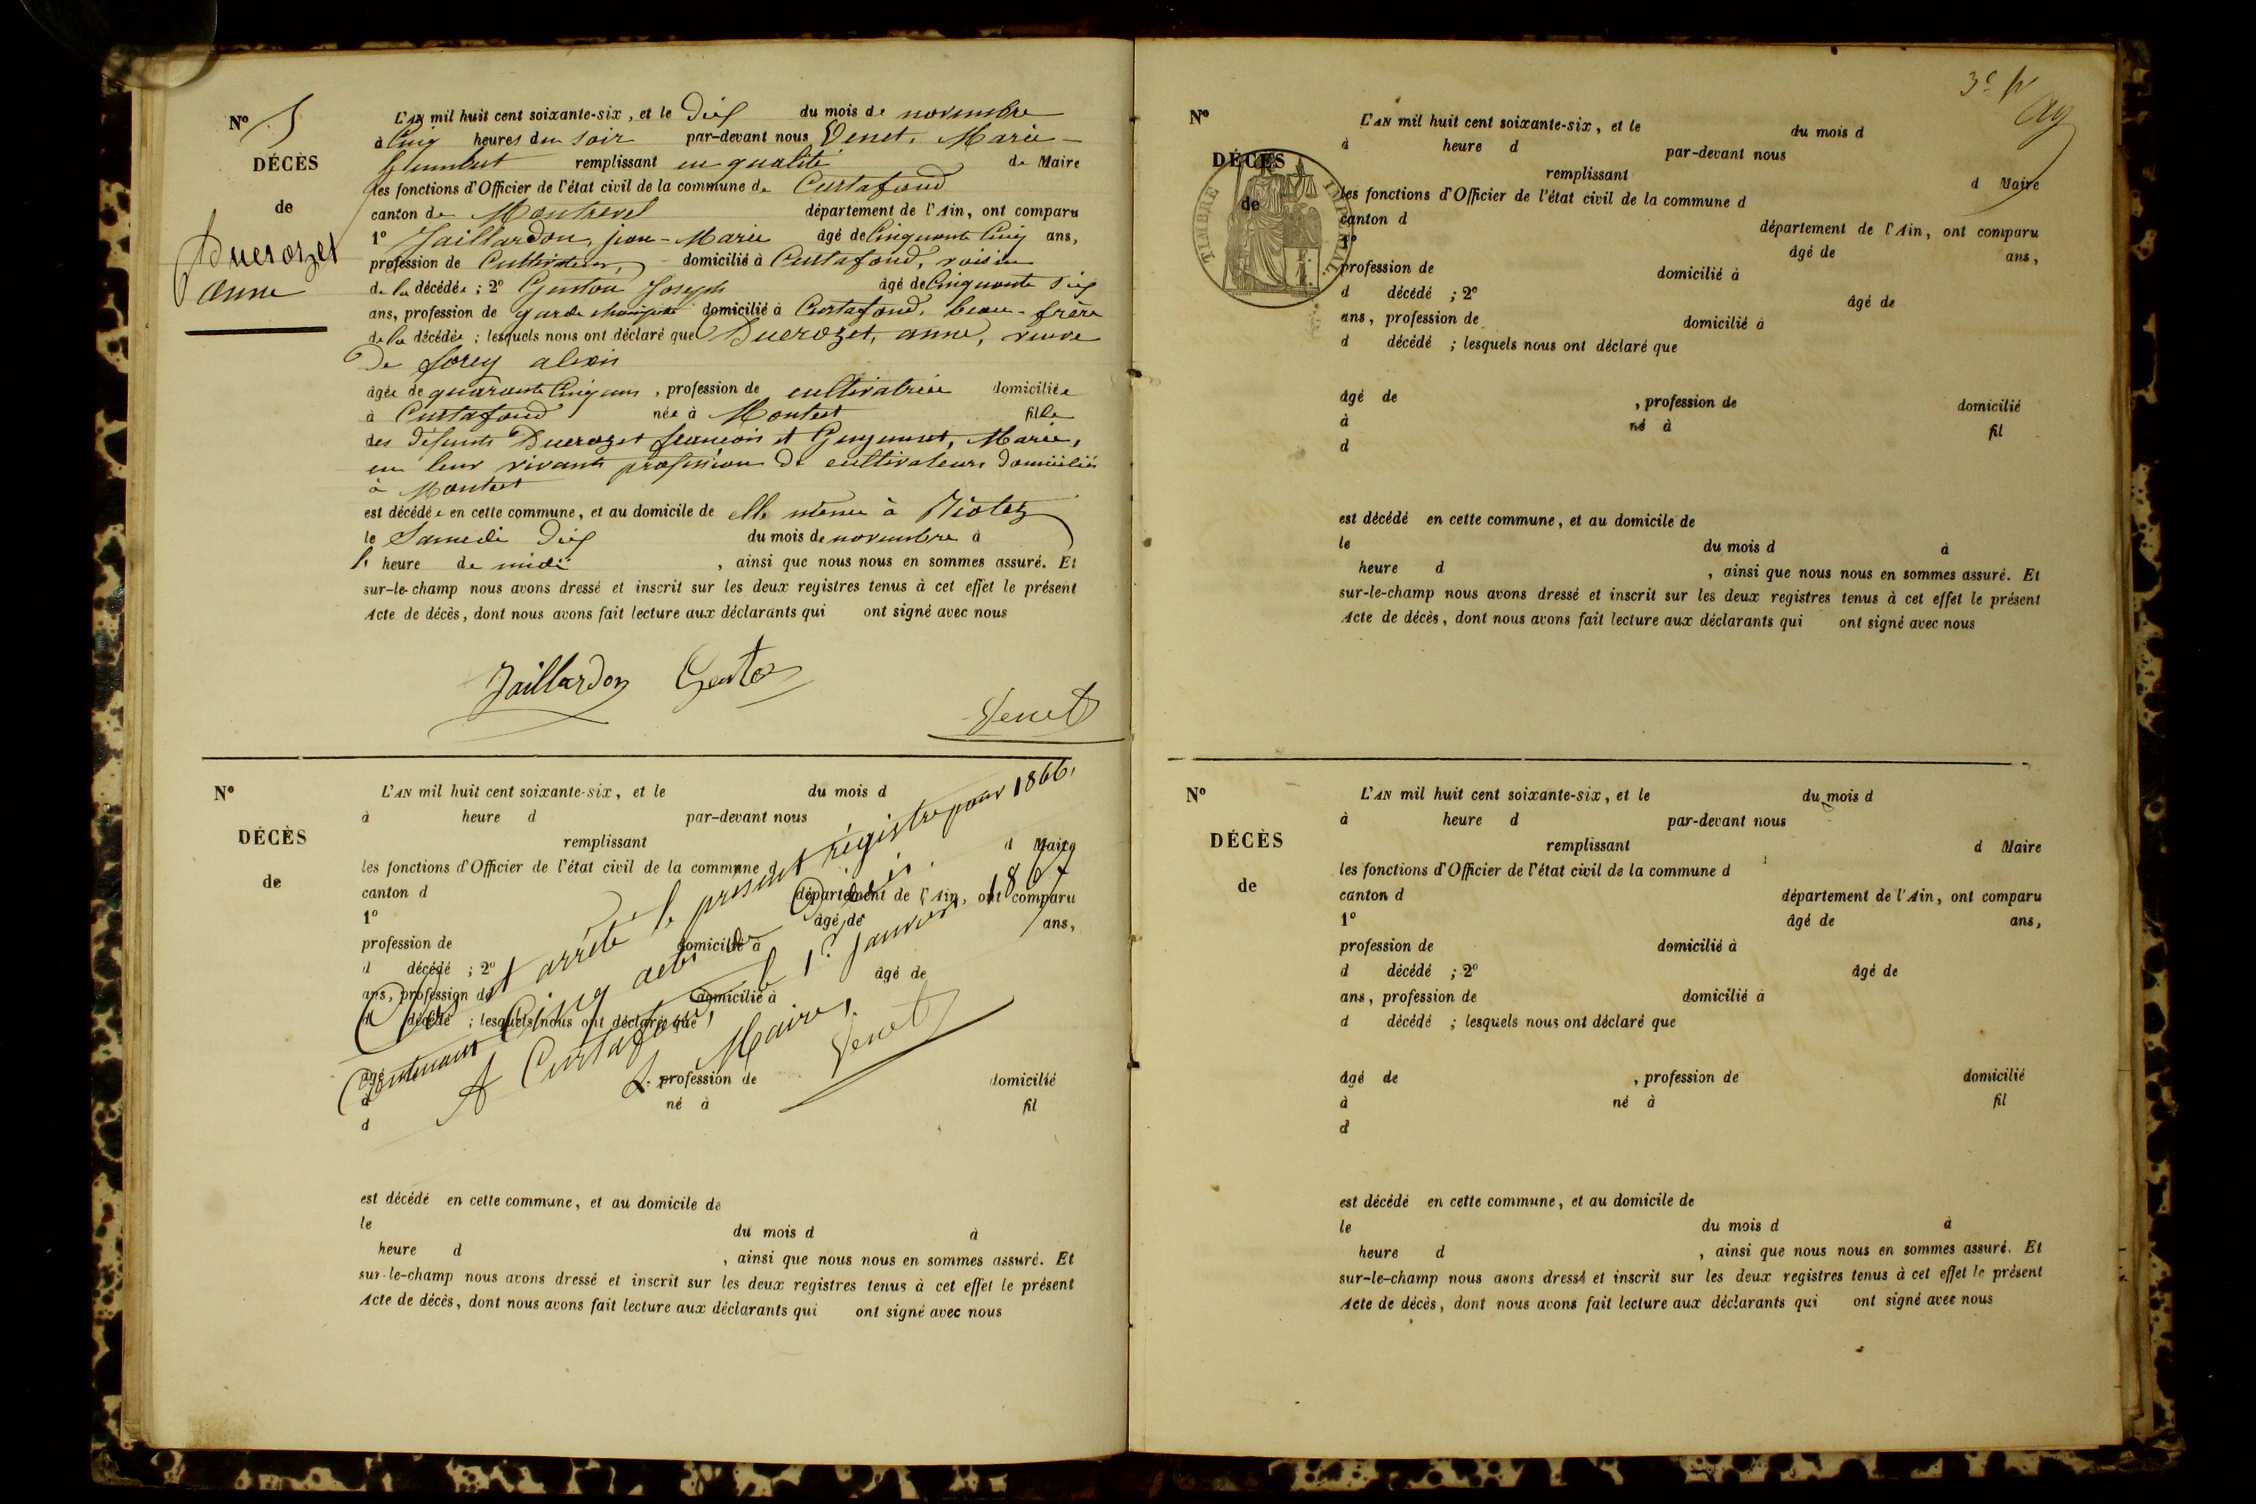 N° 5
DÉCÈS
de
Ducrozet
anne
L'AN mil huit cent soixante-six, et le Dix du mois de novembre
à Cinq heures du soir par-devant nous Venet, Marie-
humbert remplissant en qualité de Maire
les fonctions d'Officier de l'état civil de la commune de Curtafond
canton de Montrevel département de l'Ain, ont comparu
1° Jaillardon, jean-Marie âgé de Cinquante Cinq ans,
profession de Cultivateur, domicilié à Curtafond, voisin
de la décédée ; 2° Genton Joseph âgé de Cinquante Dix
ans, profession de garde champêtre domicilié à Curtafond, beau-frère
de la décédée ; lesquels nous ont déclaré que Ducrozet, anne, veuve
De forey alexis
âgée de quarante Cinq ans, profession de cultivatrice domiciliée
à Curtafond née à Montcet fille
des défunts Ducrozet francois et Guyennet, Marie,
en leur vivant profession de cultivateurs domiciliés
à Montcet
est décédée en cette commune, et au domicile de elle même à
le Samedi Dix du mois de novembre à
l' heure de midi, ainsi que nous nous en sommes assuré. Et
sur-le-champ nous avons dressé et inscrit sur les deux registres tenus à cet effet le présent
Acte de décès, dont nous avons fait lecture aux déclarants qui ont signé avec nous
Jaillardon Genton
Venet
N°
DÉCÈS
de
L'AN mil huit cent soixante-six, et le du mois d
à heure d par-devant nous
remplissant d Maire
les fonctions d'Officier de l'état civil de la commune d
canton d département de l'Ain, ont comparu
1° âgé de ans,
profession de domicilié à
d décédé ; 2° âgé de
ans, profession de domicilié à
d décédé ; lesquels nous ont déclaré que
âgé , profession de domicilié
à né à fil
d
Clos et arrêté le présent régistre pour 1866,
Contenant Cinq actes de Décès.
A Curtafond, le 1er Janvier 1867
Le Maire,
Venet
est décédé en cette commune, et au domicile de
le du mois d à
heure d , ainsi que nous nous en sommes assuré. Et
sur-le-champ nous avons dressé et inscrit sur les deux registres tenus à cet effet le présent
Acte de décès, dont nous avons fait lecture aux déclarants qui ont signé avec nous
N°
DÉCÈS
de
TIMBRE IMPÉRIAL
L'AN mil huit cent soixante-six, et le du mois d
à heure d par-devant nous
remplissant d Maire
les fonctions d'Officier de l'état civil de la commune d
canton d département de l'Ain, ont comparu
1° âgé de ans,
profession de domicilié à
d décédé ; 2° âgé de
ans, profession de domicilié à
d décédé ; lesquels nous ont déclaré que
âgé de , profession de domicilié
à né à fil
d
est décédé en cette commune, et au domicile de
le du mois d à
heure d , ainsi que nous nous en sommes assuré. Et
sur-le-champ nous avons dressé et inscrit sur les deux registres tenus à cet effet le présent
Acte de décès, dont nous avons fait lecture aux déclarants qui ont signé avec nous
N°
DÉCÈS
de
L'AN mil huit cent soixante-six, et le du mois d
à heure d par-devant nous
remplissant d Maire
les fonctions d'Officier de l'état civil de la commune d
canton d département de l'Ain, ont comparu
1° âgé de ans,
profession de domicilié à
d décédé ; 2° âgé de
ans, profession de domicilié à
d décédé ; lesquels nous ont déclaré que
âgé de , profession de domicilié
à né à fil
d
est décédé en cette commune, et au domicile de
le du mois d à
heure d , ainsi que nous nous en sommes assuré. Et
sur-le-champ nous avons dressé et inscrit sur les deux registres tenus à cet effet le présent
Acte de décès, dont nous avons fait lecture aux déclarants qui ont signé avec nous